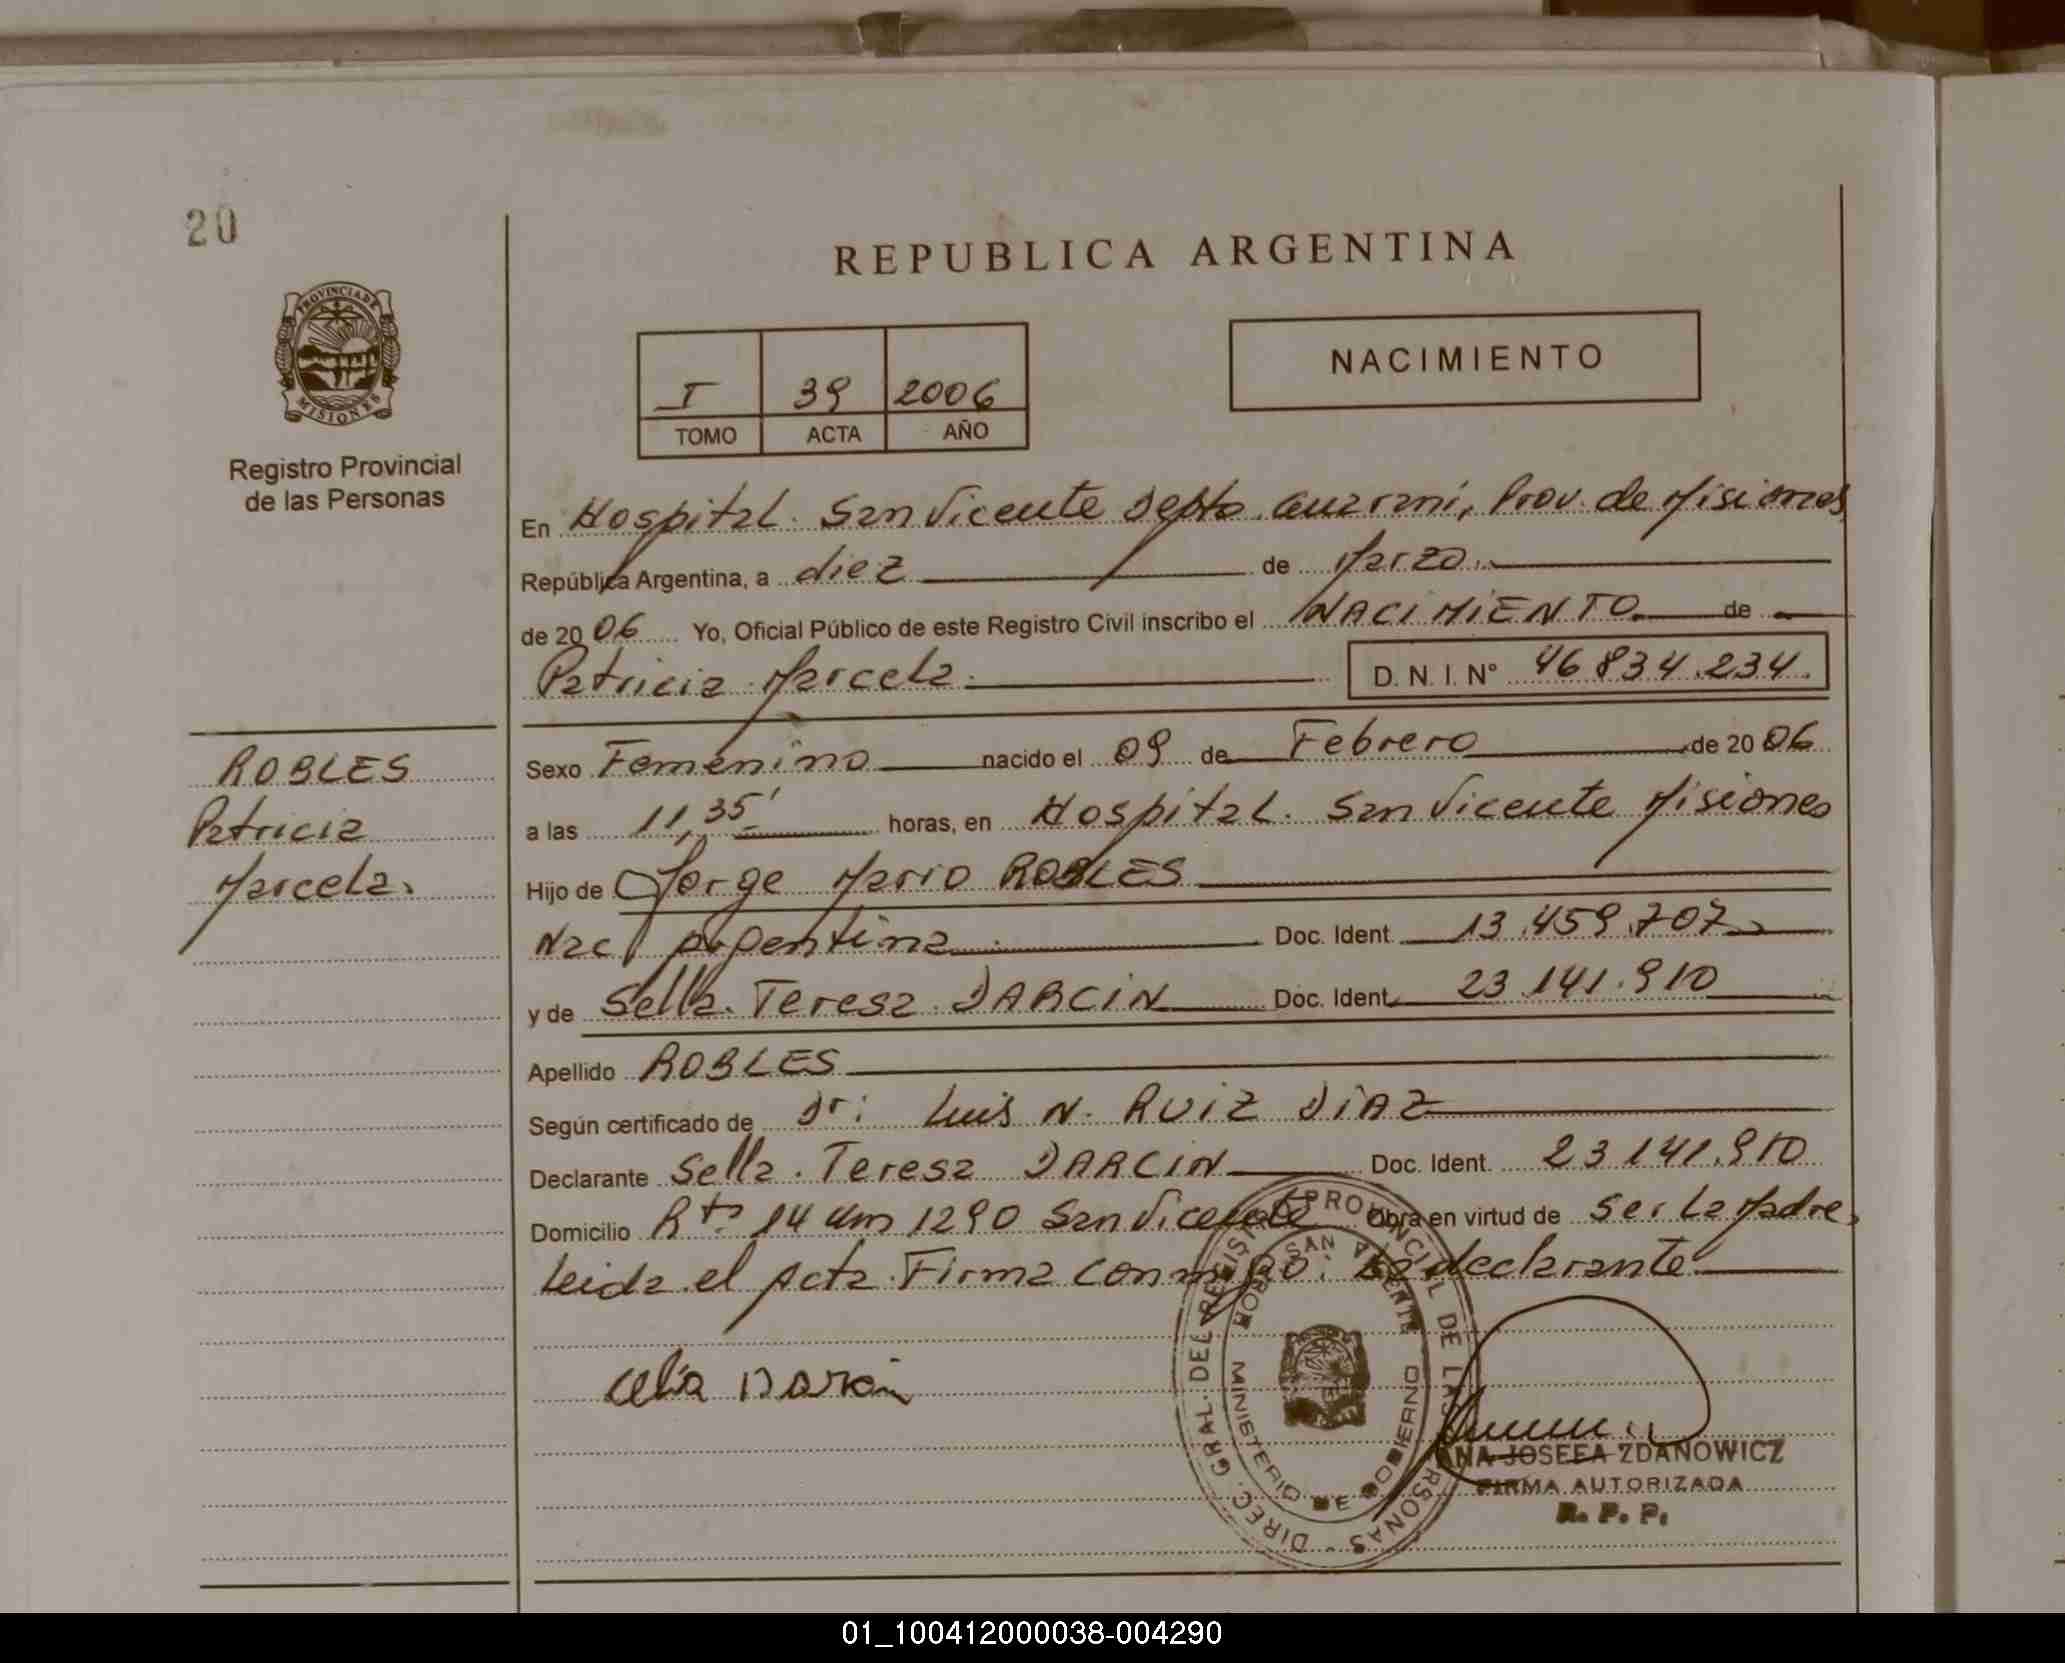 20
REPUBLICA ARGENTINA
PROVINCIA DE
MISIONES
Registro Provincial
de las Personas
I 39 2006
TOMO ACTA AÑO
NACIMIENTO
En Hospital. San Vicente Depto. Guarani, Prov. de Misiones
República Argentina, a diez de Marzo.
de 2006 Yo, Oficial Público de este Registro Civil inscribo el NACIMIENTO de
Patricia Marcela. D. N. I. N° 46834.234.
ROBLES
Patricia
Marcela.
Sexo Femenino nacido el 09 de Febrero de 2006
a las 11,35' horas, en Hospital. San Vicente Misiones
Hijo de Jorge Mario ROBLES
Nac. Argentina Doc. Ident. 13.459.707
y de Sella. Teresa. DARCIN Doc. Ident. 23.141.910
Apellido ROBLES
Según certificado de Dr: Luis N. RUIZ DIAZ
Declarante Sella. Teresa DARCIN Doc. Ident. 23141.910
Domicilio Rta 14 Km 1290 San Vicente Obra en virtud de ser la Madre,
Leida el Acta. Firma conmigo: La declarante
Celia Darcin
DIREC. GRAL. DEL REGISTRO PROVINCIAL DE LAS PERSONAS
SAN VICENTE
MINISTERIO DE GOBIERNO
ANA JOSEFA ZDANOWICZ
FIRMA AUTORIZADA
R. P. P.
01_100412000038-004290